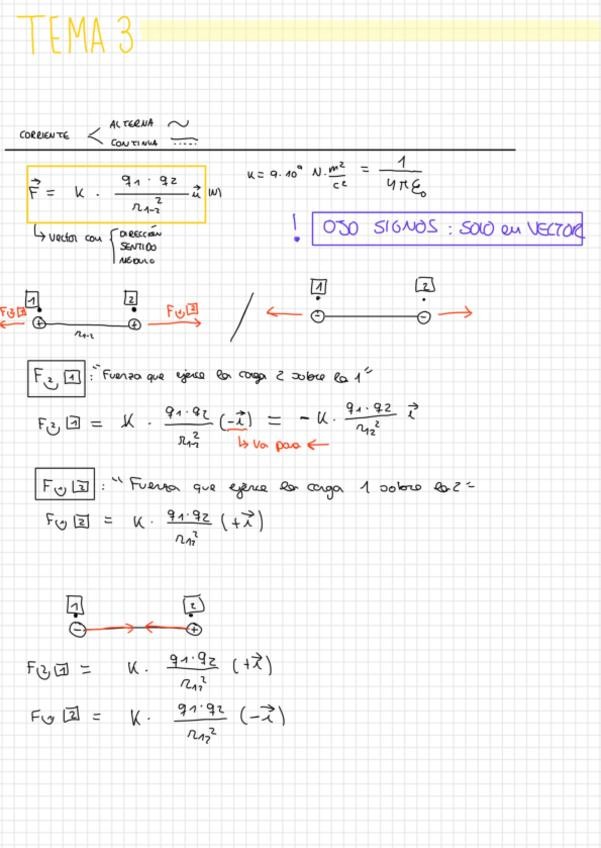 TEMA 3
CORRIENTE < ALTERNA ~
CONTINUA
F⃗ = K · q1 · q2 / r1-2² u⃗ (N)
K = 9·10⁹ N·m²/C² = 1 / 4πε₀
↳ vector con { DIRECCIÓN
SENTIDO
MÓDULO
! OJO SIGNOS : SOLO en VECTOR
1 2 1 2
F 2 1 F 1 2
+ r1-2 + / - -
F 2 1 : "Fuerza que ejerce la carga 2 sobre la 1"
F 2 1 = K · q1·q2 / r1-2² (-i⃗) = - K · q1·q2 / r12² i⃗
↳ Va para ←
F 1 2 : "Fuerza que ejerce la carga 1 sobre la 2"
F 1 2 = K · q1·q2 / r12² (+i⃗)
1 2
- +
F 2 1 = K · q1·q2 / r12² (+i⃗)
F 1 2 = K · q1·q2 / r12² (-i⃗)